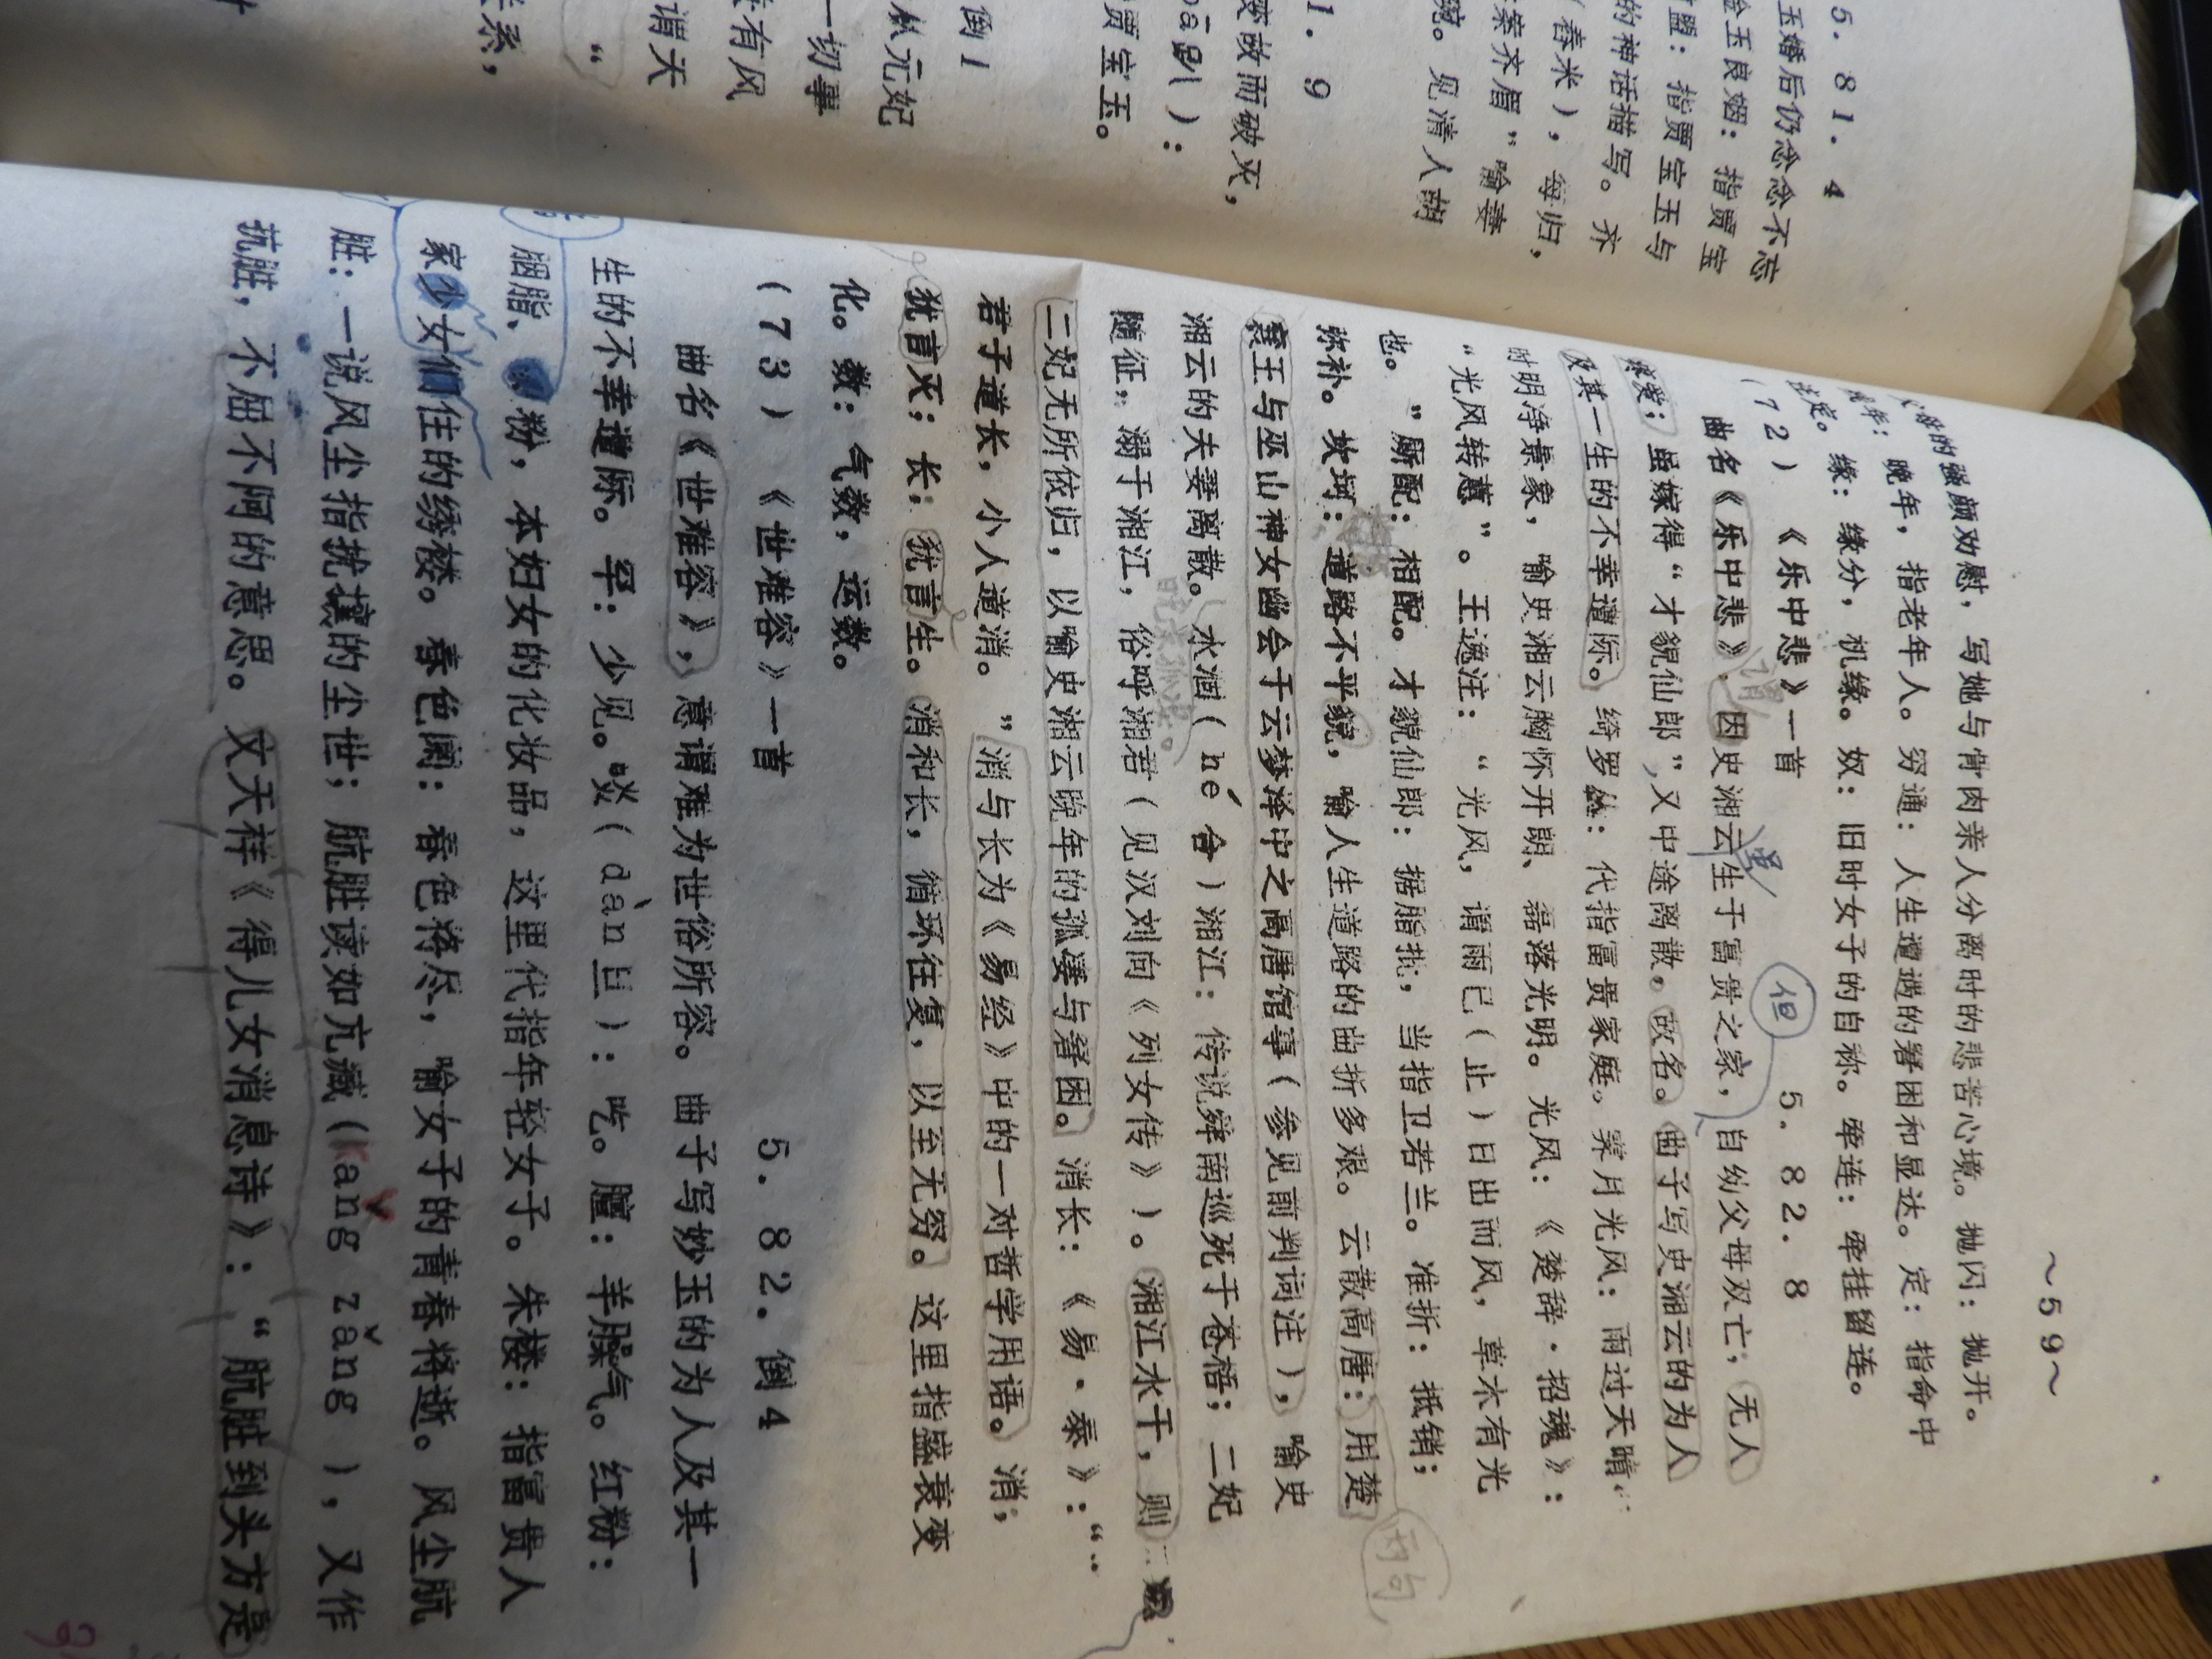 5.81.4
玉婚后仍念念不忘
金玉良姻：指贾宝
盟：指贾宝玉与
的神话描写。齐
（舂米），每归，
案齐眉”喻妻
婉。见清人胡
1.9
变故而破灭，
贾宝玉。
倒1
从元妃
一切事
有风
谓天
“
系，
～59～
的强颜劝慰，写她与骨肉亲人分离时的悲苦心境。抛闪：抛开。
年：晚年，指老年人。穷通：人生遭遇的窘困和显达。定：指命中
注定。缘：缘分，机缘。奴：旧时女子的自称。牵连：牵挂留连。
（72）《乐中悲》一首 5.82.8
曲名《乐中悲》，因史湘云虽生于富贵之家，但自幼父母双亡，无人
疼爱；虽嫁得“才貌仙郎”，又中途离散。故名。曲子写史湘云的为人
及其一生的不幸遭际。绮罗丛：代指富贵家庭。霁月光风：雨过天晴
时明净景象，喻史湘云胸怀开朗、磊落光明。光风：《楚辞·招魂》：
“光风转蕙”。王逸注：“光风，谓雨已（止）日出而风，草木有光
也。”厮配：相配。才貌仙郎：据脂批，当指卫若兰。准折：抵销；
弥补。坎坷：道路不平貌，喻人生道路的曲折多艰。云散高唐：用楚
襄王与巫山神女幽会于云梦泽中之高唐馆事（参见前判词注），喻史
湘云的夫妻离散。水涸（hé合）湘江：传说舜南巡死于苍梧；二妃
随征，溺于湘江，俗呼湘君（见汉刘向《列女传》）。湘江水干，则
二妃无所依归，以喻史湘云晚年的孤凄与窘困。消长：《易·泰》：“
君子道长，小人道消。”消与长为《易经》中的一对哲学用语。消：
犹言灭；长：犹言生。消和长，循环往复，以至无穷。这里指盛衰变
化。数：气数，运数。
（73）《世难容》一首 5.82.倒4
曲名《世难容》，意谓难为世俗所容。曲子写妙玉的为人及其一
生的不幸遭际。罕：少见。啖（dàn旦）：吃。膻：羊臊气。红粉：
胭脂、粉，本妇女的化妆品，这里代指年轻女子。朱楼：指富贵人
家少女们住的绣楼。春色阑：春色将尽，喻女子的青春将逝。风尘肮
脏：一说风尘指扰攘的尘世；肮脏读如亢臧（kǎng zǎng），又作
抗脏，不屈不阿的意思。文天祥《得儿女消息诗》：“肮脏到头方是